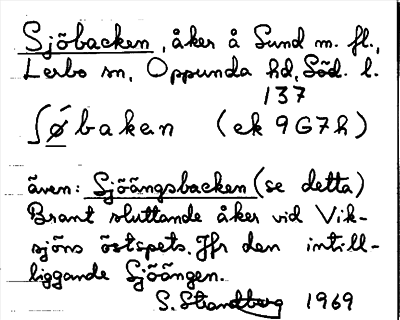 Sjöbacken, åker å Sund m. fl.,
Lerbo sn, Oppunda hd, Söd. l.
137
ʃǿbakan (ek 9G7h)
även: Sjöängsbacken (se detta)
Brant sluttande åker vid Vik-
sjöns östspets. Jfr den intill-
liggande Sjöängen.
S. Strandberg 1969